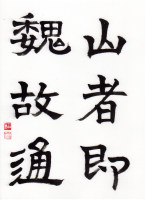 山者即
魏故通